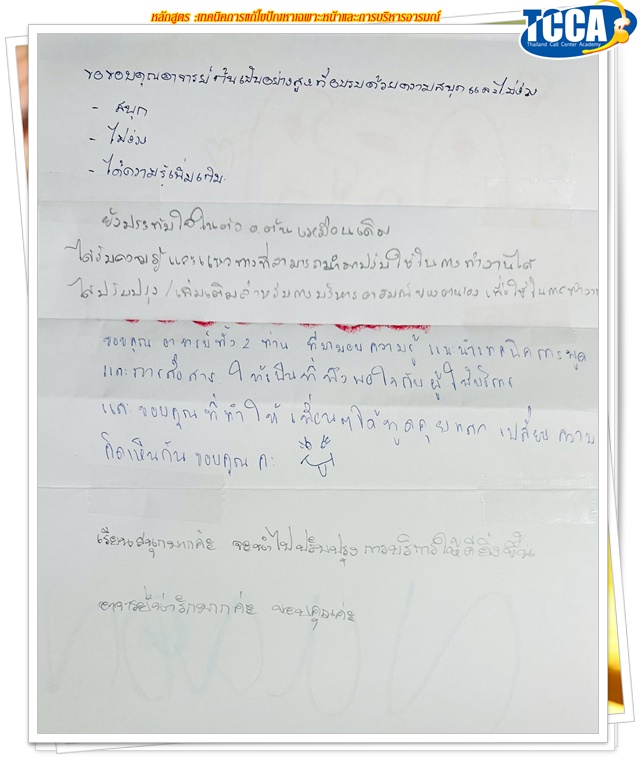 หลักสูตร :เทคนิคการแก้ไขปัญหาเฉพาะหน้าและการบริหารอารมณ์
TCCA
Thailand Call Center Academy
ขอขอบคุณอาจารย์ เป็นอย่างสูงที่อบรมด้วยความสนุกและไม่ง่วง
- สนุก
- ไม่ง่วง
- ได้ความรู้เพิ่มเติม
ยังประทับใจในตัว เหมือนเดิม
ได้รับความรู้ และแนวทางที่สามารถนำมาปรับใช้ในการทำงานได้
ได้ปรับปรุง/เพิ่มเติมสำหรับการบริหารอารมณ์ของตนเอง เพื่อใช้ในการทำงาน
ขอบคุณ อาจารย์ทั้ง 2 ท่าน ที่มามอบความรู้ แนะนำเทคนิคการพูด
และการสื่อสาร ให้เป็นที่พึงพอใจกับผู้ใช้บริการ
และ ขอบคุณที่ทำให้ เพื่อนๆได้พูดคุยแลก เปลี่ยน ความ
คิดเห็นกัน ขอบคุณ ค่ะ
เรียนสนุกมากค่ะ จะนำไปปรับปรุง การบริการให้ดียิ่งขึ้น
อาจารย์น่ารักมากค่ะ ขอบคุณค่ะ